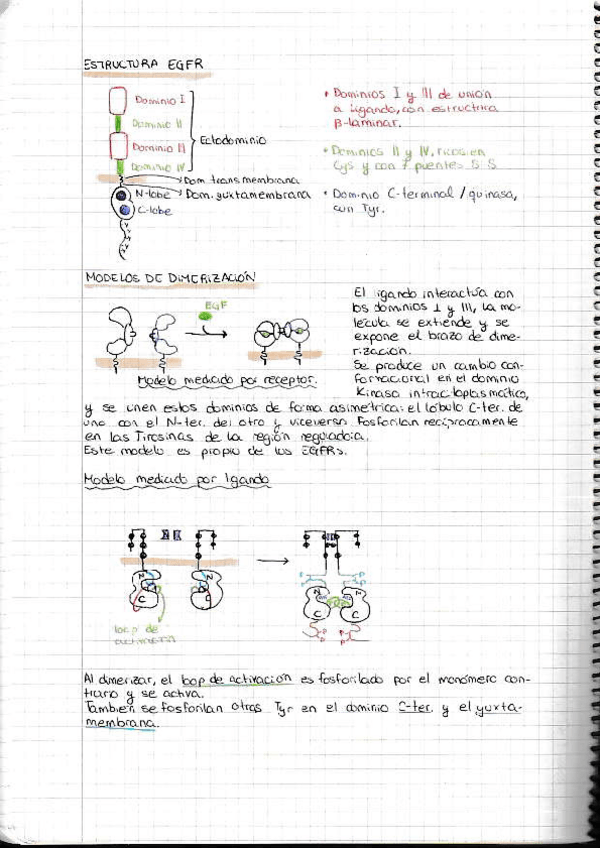 ESTRUCTURA EGFR
Dominio I
Dominio II
Dominio III
Dominio IV
Ectodominio
Dom. transmembrana
Dom. yuxtamembrana
N-lobe
C-lobe
• Dominios I y III de unión
a ligando, con estructura
β-laminar.
• Dominios II y IV, ricos en
Cys y con 7 puentes S-S
• Dominio C-terminal / quinasa,
con Tyr.
MODELOS DE DIMERIZACIÓN
EGF
Modelo mediado por receptor.
El ligando interactúa con
los dominios I y III, la mo-
lécula se extiende y se
expone el brazo de dime-
rización.
Se produce un cambio con-
formacional en el dominio
kinasa intracitoplasmático,
y se unen estos dominios de forma asimétrica: el lóbulo C-ter. de
uno con el N-ter. del otro y viceversa. Fosforilan recíprocamente
en las Tirosinas de la región reguladora.
Este modelo es propio de los EGFRs.
Modelo mediado por ligando
N
C
N
C
loop de
activación
P
P
P
P
N
C
N
C
P
P
P
P
Al dimerizar, el loop de activación es fosforilado por el monómero con-
trario y se activa.
También se fosforilan otras Tyr en el dominio C-ter. y el yuxta-
membrana.